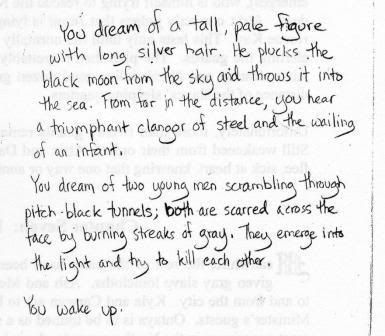 You dream of a tall, pale figure
with long silver hair. He plucks the
black moon from the sky and throws it into
the sea. From far in the distance, you hear
a triumphant clangor of steel and the wailing
of an infant.
You dream of two young men scrambling through
pitch-black tunnels; both are scarred across the
face by burning streaks of gray. They emerge into
the light and try to kill each other.
You wake up.